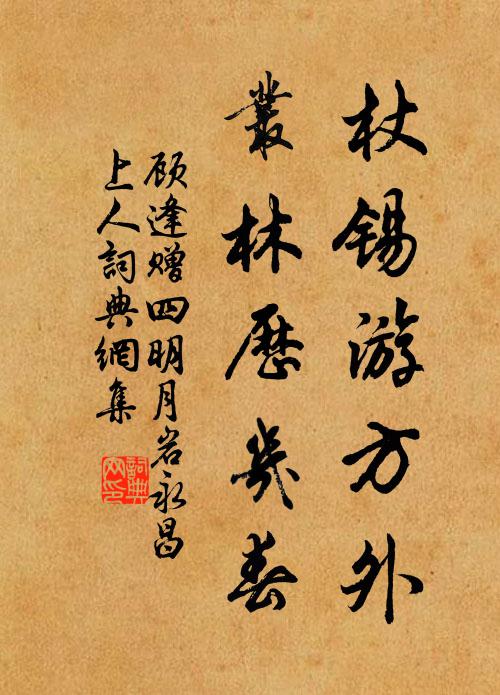 杖锡游方外
叢林歷幾春
顾逢赠四明月岩永昌
上人詞典網集
詞典网印